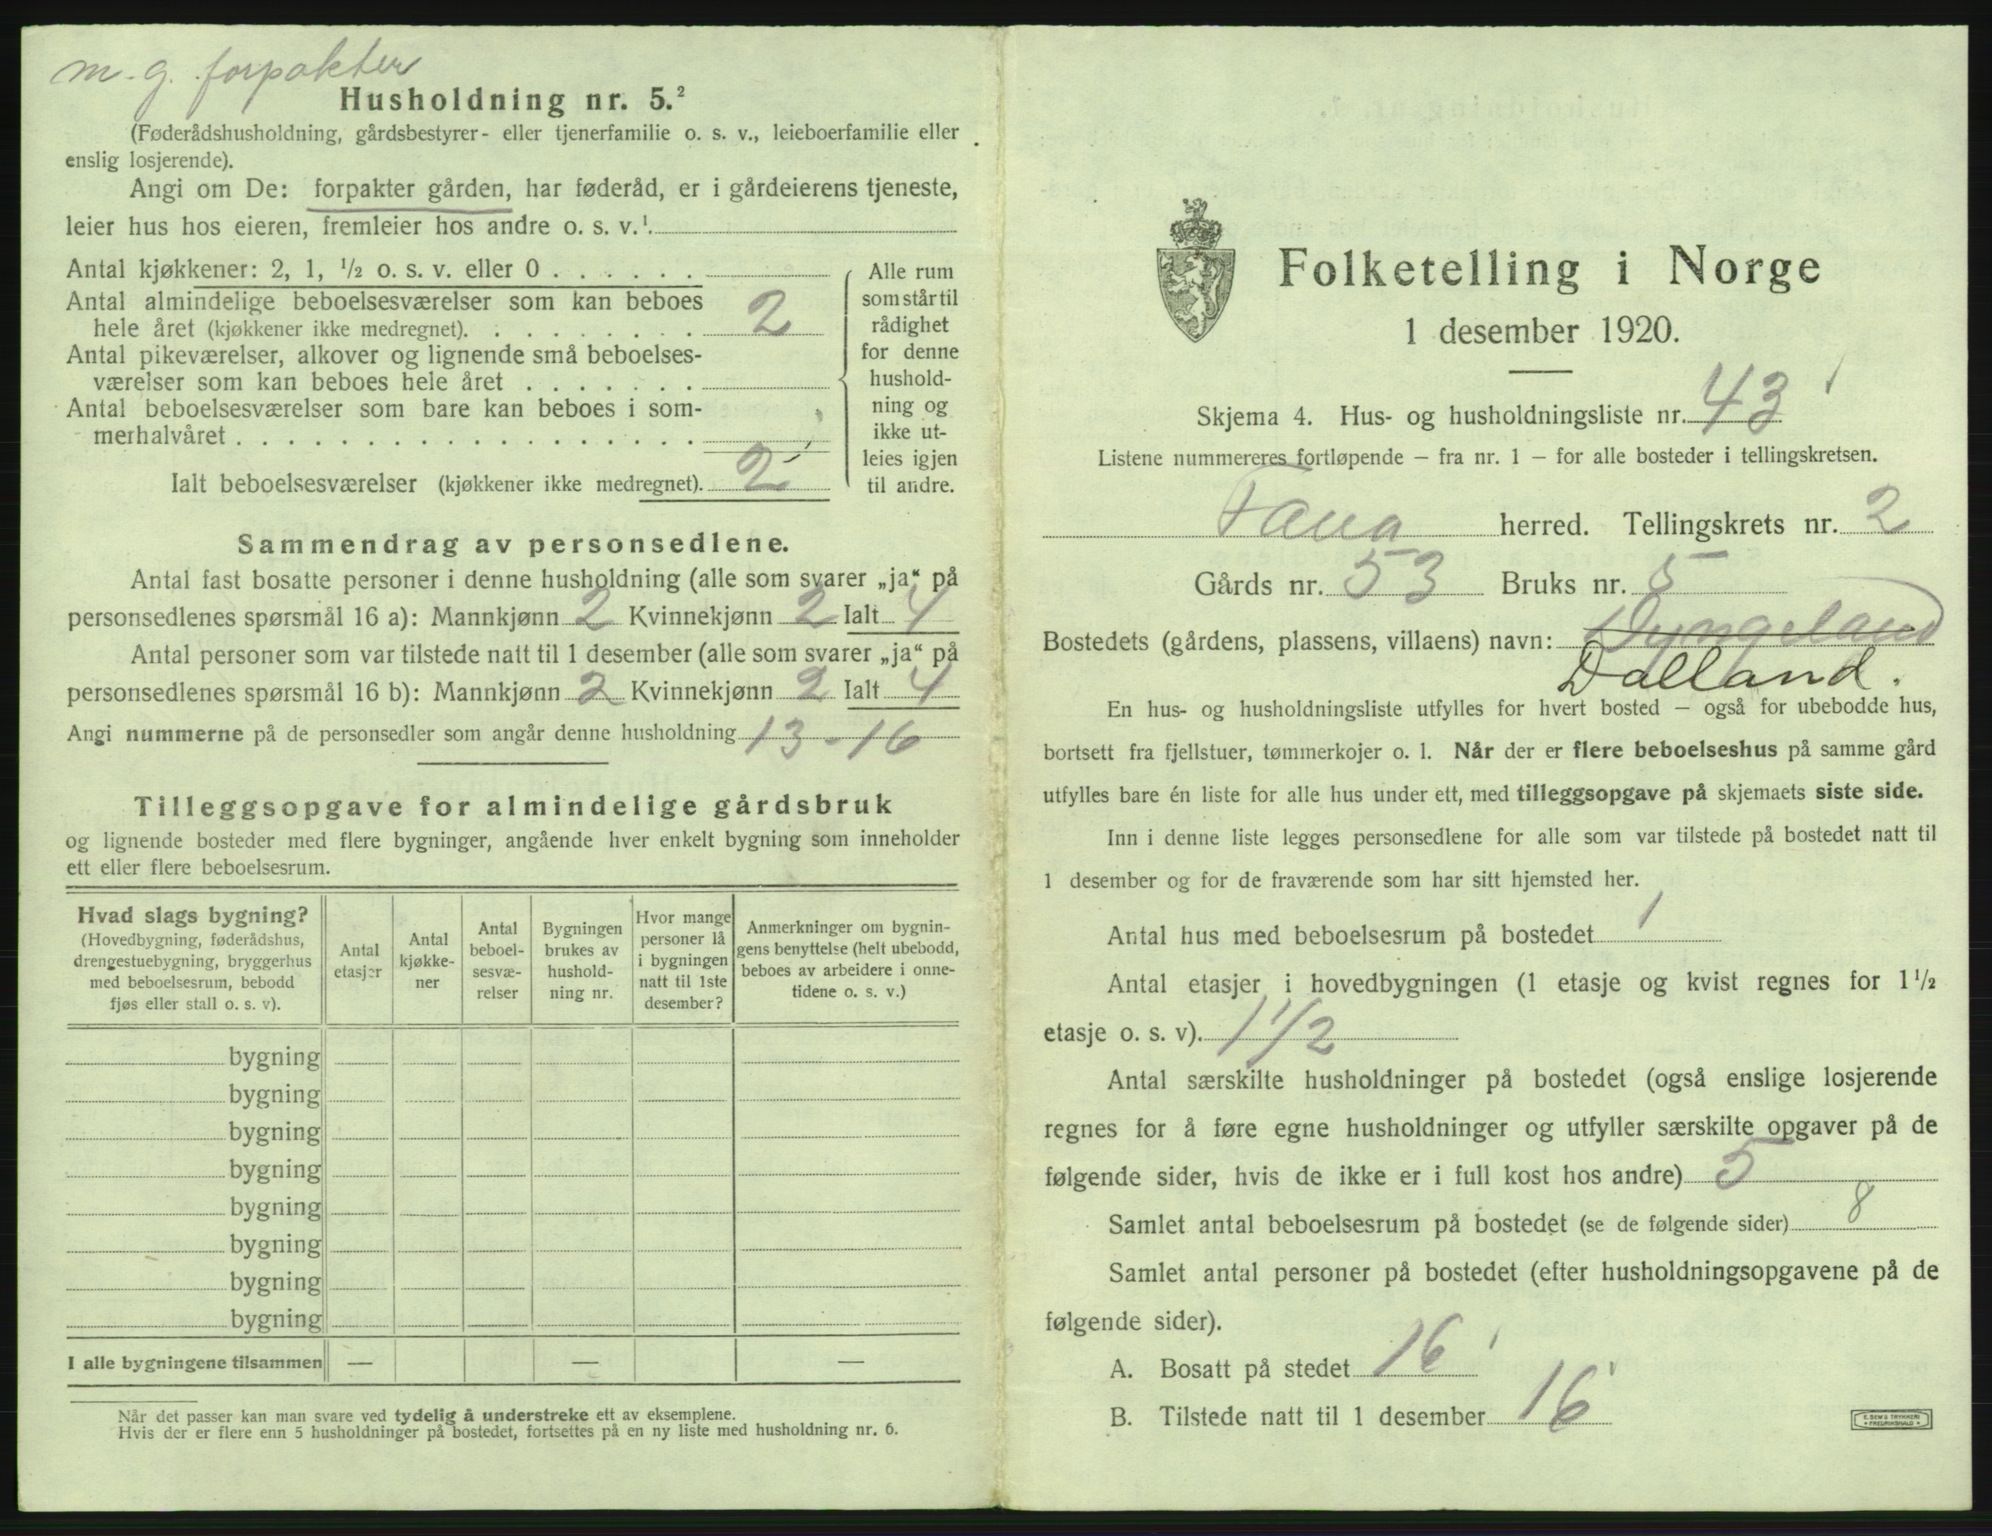 m. g. forpakter
Husholdning nr. 5.²
(Føderådshusholdning, gårdsbestyrer- eller tjenerfamilie o. s. v., leieboerfamilie eller
enslig losjerende).
Angi om De: forpakter gården, har føderåd, er i gårdeierens tjeneste,
leier hus hos eieren, fremleier hos andre o. s. v.¹
Antal kjøkkener: 2, 1, ½ o. s. v. eller 0 . . . . . .
Antal almindelige beboelsesværelser som kan beboes
hele året (kjøkkener ikke medregnet). . . . . . . . . 2
Antal pikeværelser, alkover og lignende små beboelses-
værelser som kan beboes hele året . . . . . . .
Antal beboelsesværelser som bare kan beboes i som-
merhalvåret . . . . . . . . . . . . . . . . . .
Ialt beboelsesværelser (kjøkkener ikke medregnet). 2
Alle rum
som står til
rådighet
for denne
hushold-
ning og
ikke ut-
leies igjen
til andre.
Sammendrag av personsedlene.
Antal fast bosatte personer i denne husholdning (alle som svarer „ja“ på
personsedlenes spørsmål 16 a): Mannkjønn 2 Kvinnekjønn 2 Ialt 4
Antal personer som var tilstede natt til 1 desember (alle som svarer „ja“ på
personsedlenes spørsmål 16 b): Mannkjønn 2 Kvinnekjønn 2 Ialt 4
Angi nummerne på de personsedler som angår denne husholdning 13 - 16
Tilleggsopgave for almindelige gårdsbruk
og lignende bosteder med flere bygninger, angående hver enkelt bygning som inneholder
ett eller flere beboelsesrum.
Hvad slags bygning?
(Hovedbygning, føderådshus,
drengestuebygning, bryggerhus
med beboelsesrum, bebodd
fjøs eller stall o. s. v).
Antal
etasjer
Antal
kjøkke-
ner
Antal
beboel-
sesvæ-
relser
Bygningen
brukes av
hushold-
ning nr.
Hvor mange
personer lå
i bygningen
natt til 1ste
desember?
Anmerkninger om bygnin-
gens benyttelse (helt ubebodd,
beboes av arbeidere i onne-
tidene o. s. v.)
bygning
bygning
bygning
bygning
bygning
bygning
bygning
bygning
I alle bygningene tilsammen — — —
Når det passer kan man svare ved tydelig å understreke ett av eksemplene.
Hvis der er flere enn 5 husholdninger på bostedet, fortsettes på en ny liste med husholdning nr. 6.
Folketelling i Norge
1 desember 1920.
Skjema 4. Hus- og husholdningsliste nr. 43
Listene nummereres fortløpende – fra nr. 1 – for alle bosteder i tellingskretsen.
Fana herred. Tellingskrets nr. 2
Gårds nr. 53 Bruks nr. 5
Bostedets (gårdens, plassens, villaens) navn: Dyngeland
Dalland.
En hus- og husholdningsliste utfylles for hvert bosted – også for ubebodde hus,
bortsett fra fjellstuer, tømmerkojer o. l. Når der er flere beboelseshus på samme gård
utfylles bare én liste for alle hus under ett, med tilleggsopgave på skjemaets siste side.
Inn i denne liste legges personsedlene for alle som var tilstede på bostedet natt til
1 desember og for de fraværende som har sitt hjemsted her.
Antal hus med beboelsesrum på bostedet 1
Antal etasjer i hovedbygningen (1 etasje og kvist regnes for 1½
etasje o. s. v). 1 1/2
Antal særskilte husholdninger på bostedet (også enslige losjerende
regnes for å føre egne husholdninger og utfyller særskilte opgaver på de
følgende sider, hvis de ikke er i full kost hos andre) 5
Samlet antal beboelsesrum på bostedet (se de følgende sider) 8
Samlet antal personer på bostedet (efter husholdningsopgavene på de
følgende sider).
A. Bosatt på stedet 16
B. Tilstede natt til 1 desember 16
E. SEM'S TRYKKERI
FREDRIKSHALD